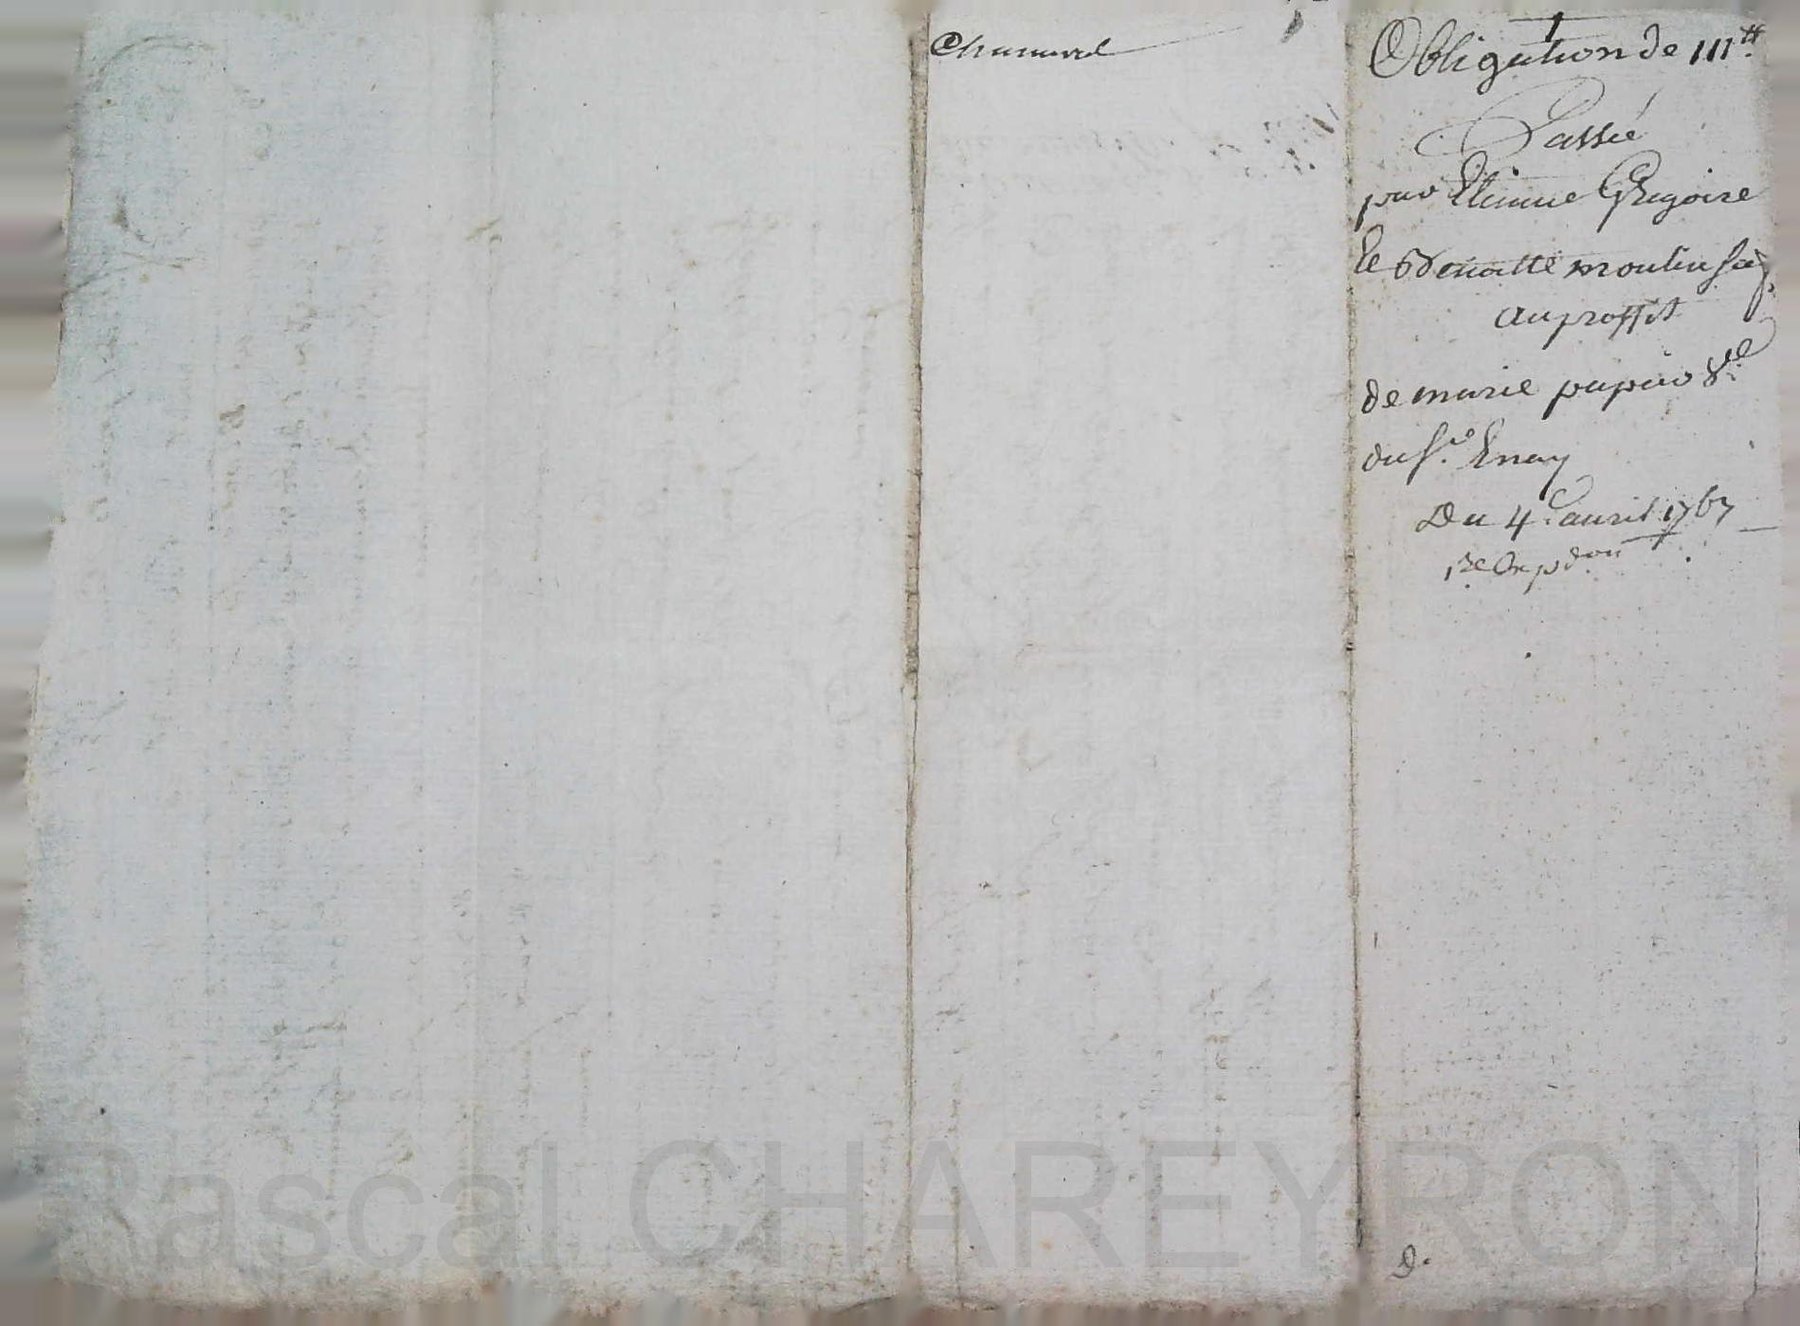 Obligation de 111ᵗᵗ
Passée
par Etienne Gregoire
et Benoitte moulin sa f.
au proffit
de marie papier v.ᵉ
du s.ʳ Enay
Du 4.ᵉ avril 1767
1.ʳᵉ Expd.ᵒⁿ
D.
Pascal CHAREYRON